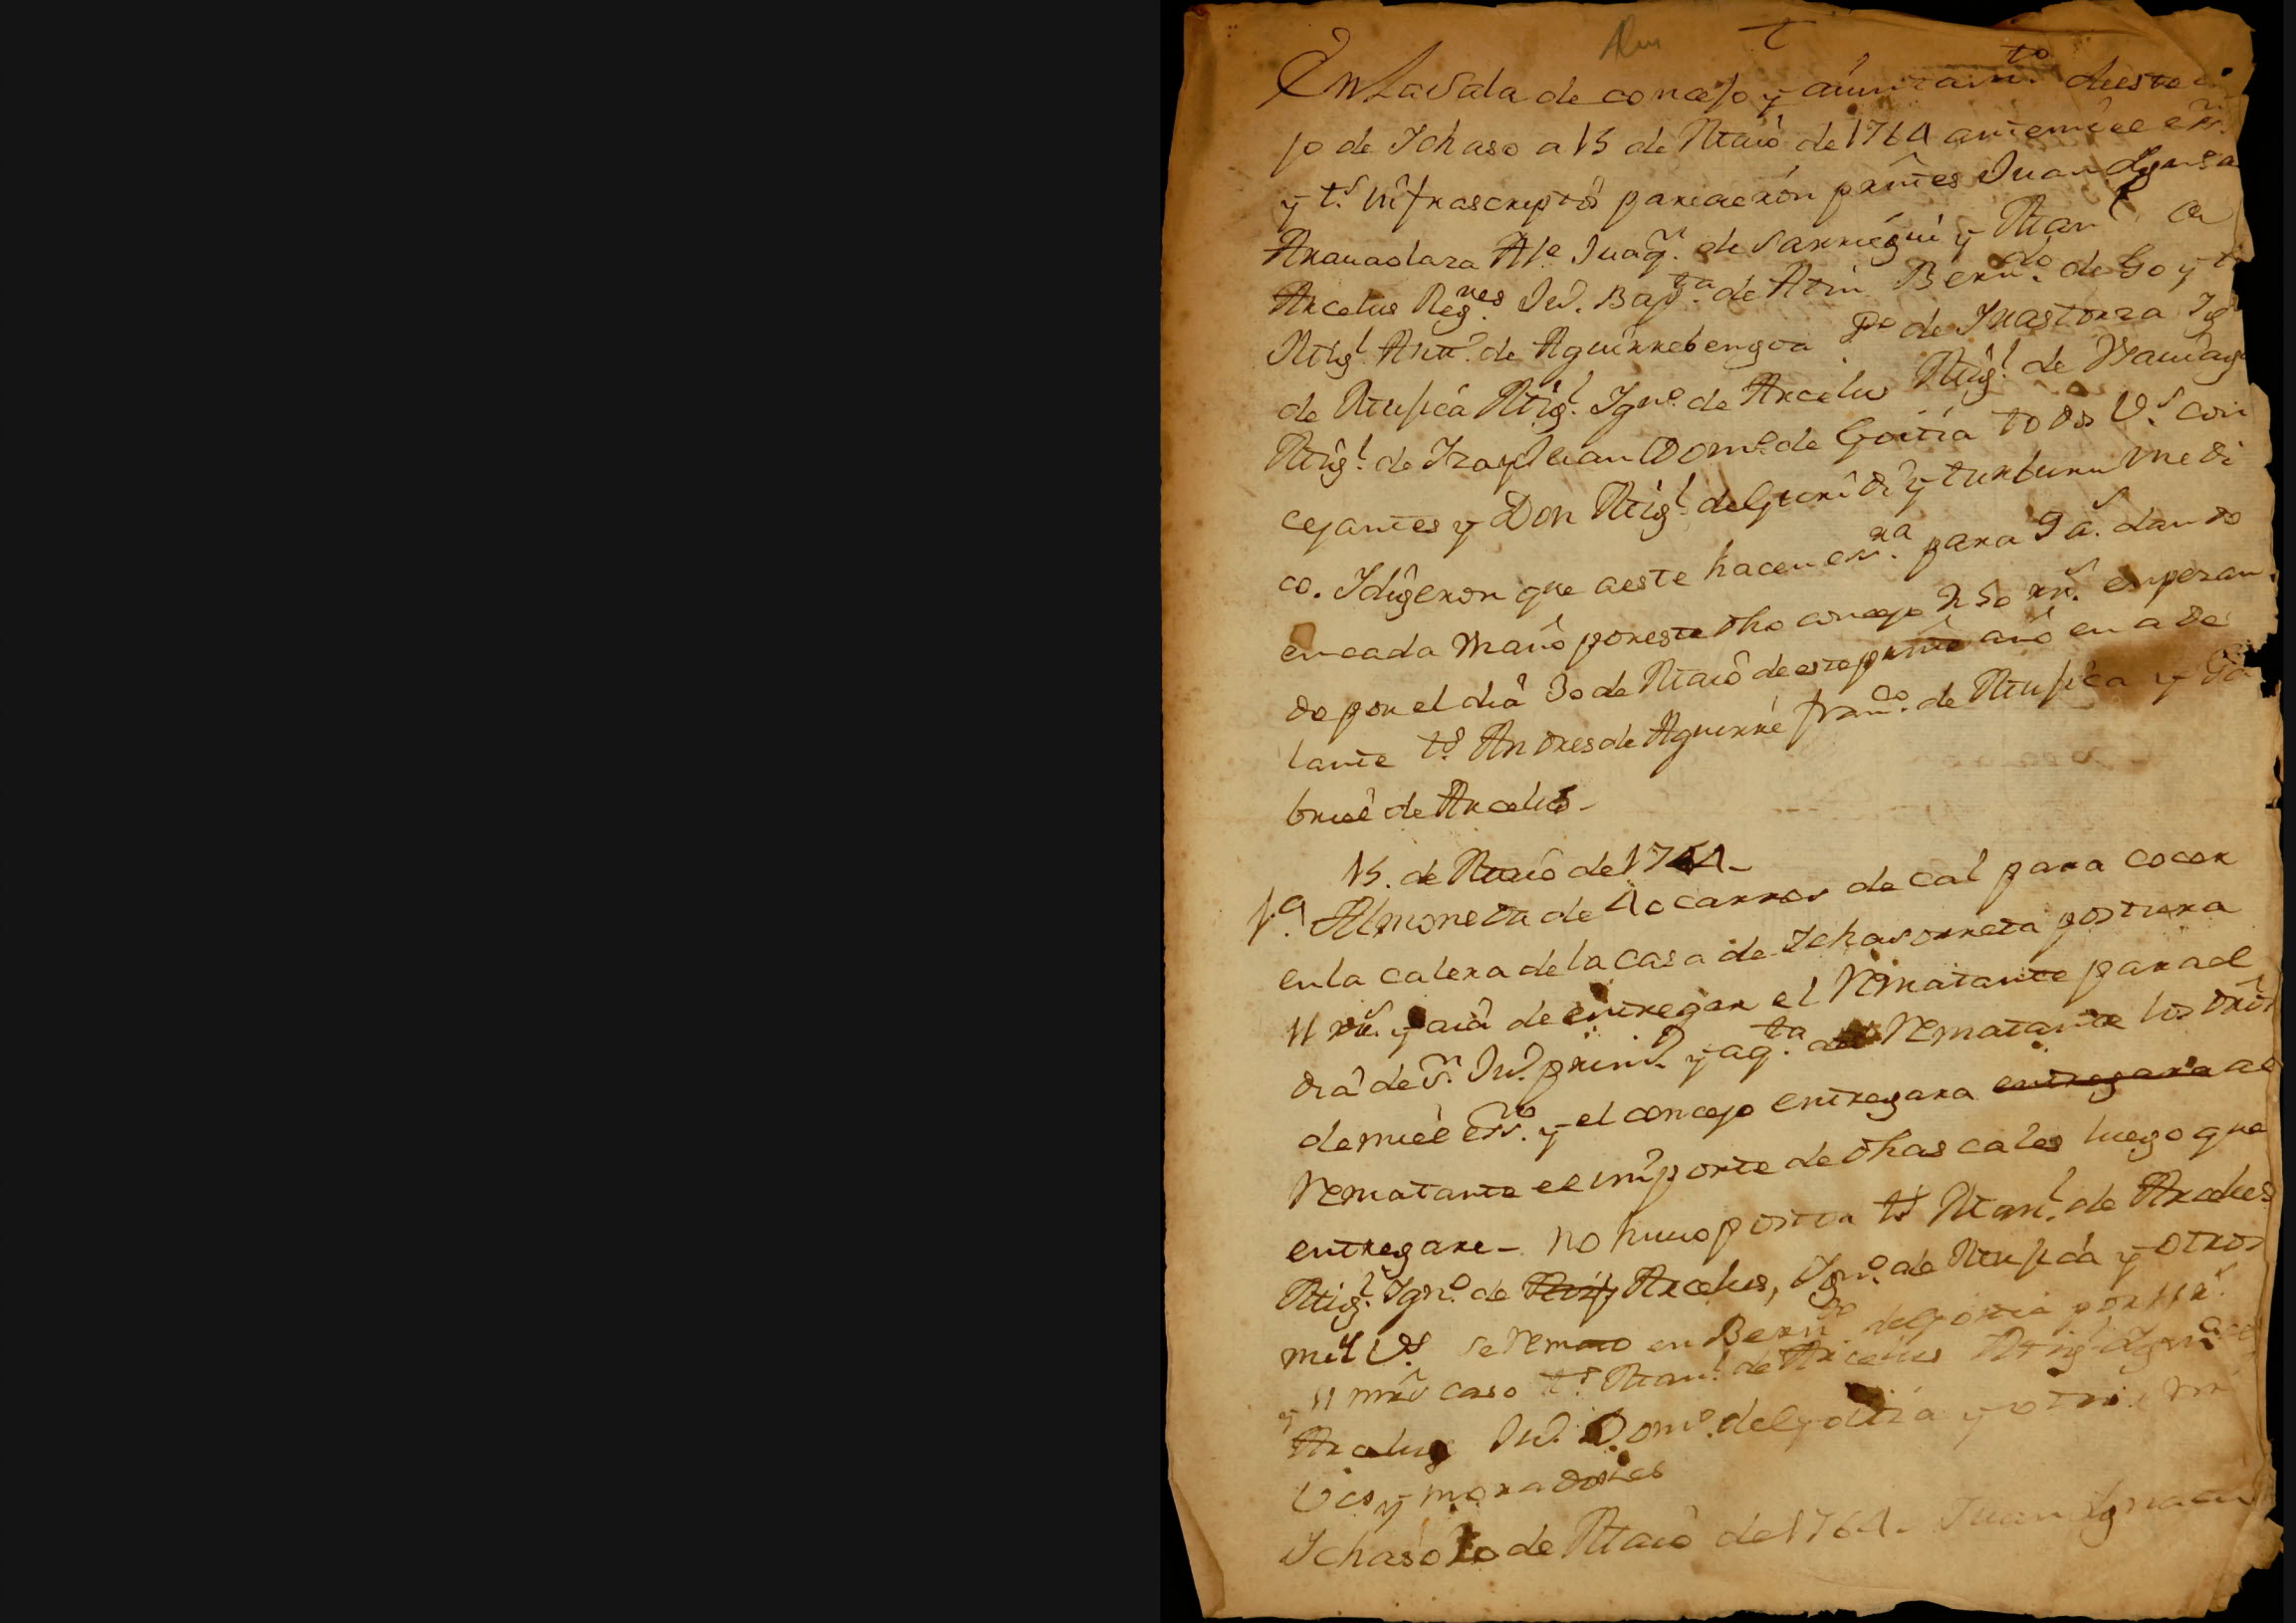 En La Sala de concejo y aiuntam.to deeste
jo de Ichaso a 15 de Maio de 1764 antemi el ess.no
y t.s infrascriptos parecieron pntes Juan Ign.o
Aranaolaza Al.e Juaq.n de Sarriegui y Man.l
Arcelus Reg.nes Ju.o Bap.ta de Atin Bern.do de Goyt
Mig.l Ant.o de Aguirrebengoa P.o de Inastorza Ig
de Mujica Mig.l Ign.o de Arcelus Mig.l de
Mig.l de Izag Juan Dom.o de Goitia todos V.s con
cejantes y Don Mig.l de Gueridi y turburu medi
co. I digeron que aeste hacen ess.ra para 9 a.s dando
en cada un año por este dho concejo 250 rr.s enpezan
do por el dia 30 de Maio de este pnte año en a de
lante t.s Andres de Aguirre Fran.co de Mujica y Ga
briel de Arcelus -
15. de Maio de 1764 -
1.a Almoneda de 40 carros de cal para cocer
en la calera de la casa de Ichasorreta postura
11 rr.s y aiá de entregar el Rematante para el
dia de S.n Ju.o prim.o y aq.ta del Rematante los drõs
de mi el ess.no y el concejo entregara entregara al
Rematante el importe de dhas cales luego que
entregare - no huuo postor t.s Man.l de Arcelus
Mig.l Ign.o de Arcelus, Ign.o de Mujica y otros
mil V.s Se Remato en Bern.do de Goitia por 11 r.s
y 11 mrs caso t.s Man.l de Arcelus Mig.l Ign.o de
Arcelus Ju.o Dom.o de Goitia y otros
Vcs y moradores
Ichaso 20 de Maio de 1764. Juan Ignacio